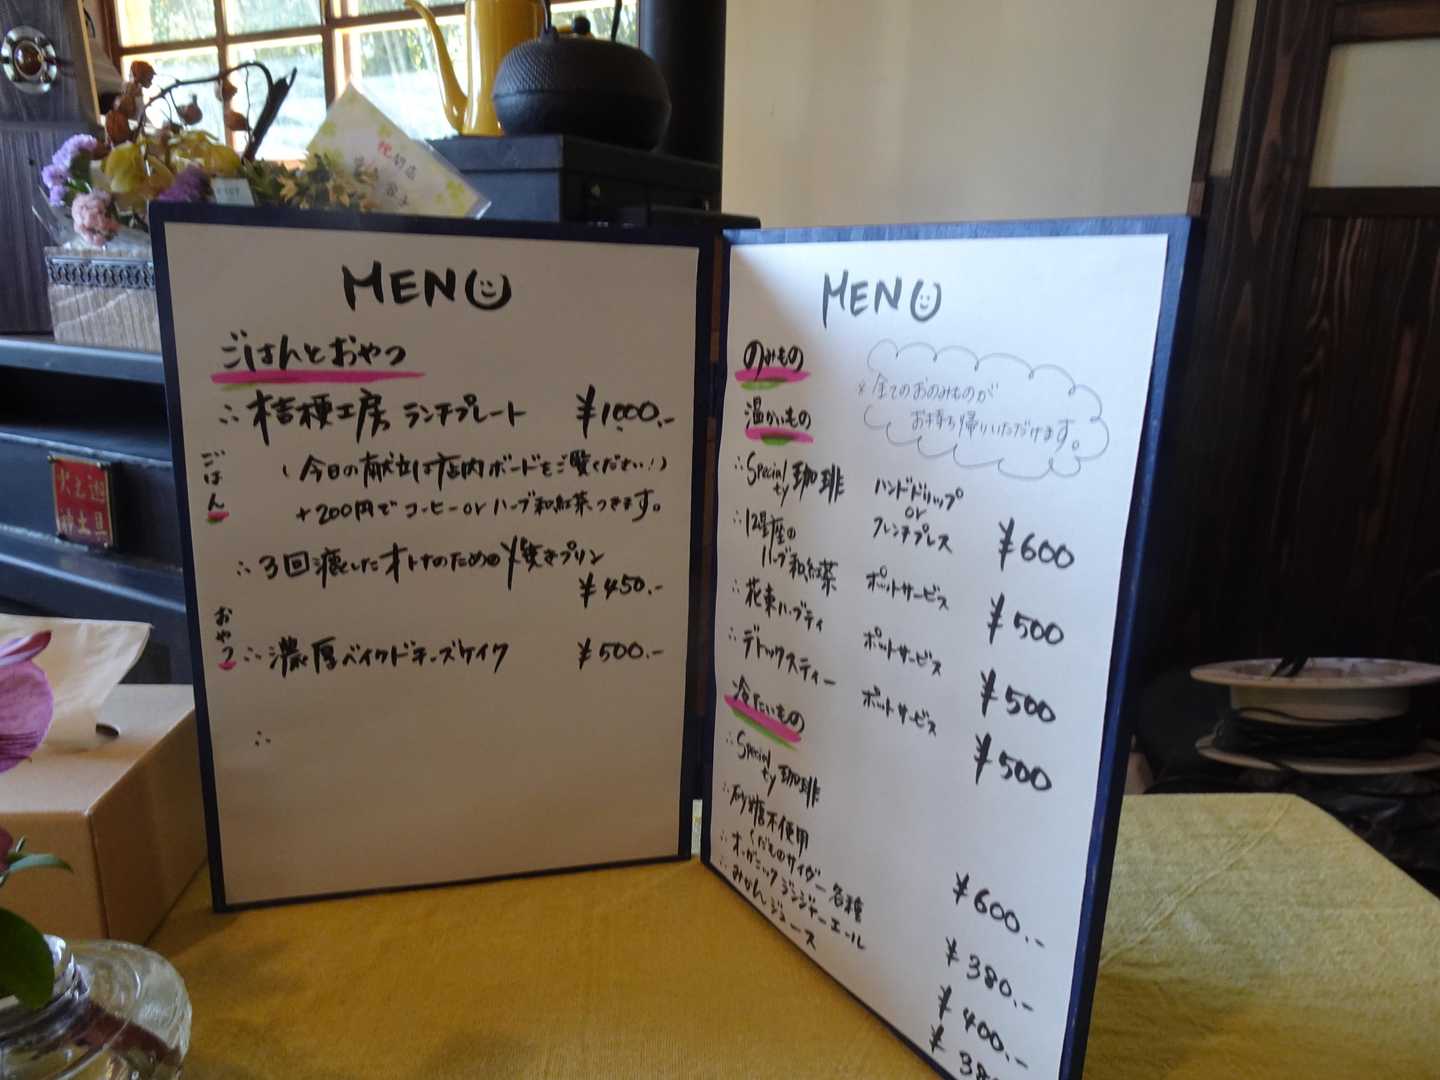 MENU
ごはんとおやつ
ごはん
∴ 桔梗工房 ランチプレート ¥1000.-
(今日の献立は店内ボードもご覧ください!)
+200円で コーヒー or ハーブ和紅茶つきます。
おやつ
∴ 3回濾したオトナのための焼きプリン
¥450.-
∴ 濃厚ベイクドチーズケイク ¥500.-
∴
MENU
のみもの
※全てのおのみものが
お持ち帰りいただけます。
温かいもの
∴ Specialty 珈琲 ハンドドリップ or フレンチプレス ¥600
∴ 12星座のハーブ和紅茶 ポットサービス ¥500
∴ 花束ハーブティ ポットサービス ¥500
∴ デトックスティー ポットサービス ¥500
冷たいもの
∴ Specialty 珈琲 ¥600.-
∴ 砂糖不使用
くだものサイダー各種 ¥380.-
∴ オーガニックジンジャーエール ¥400.-
∴ みかんジュース ¥38
祝 開店